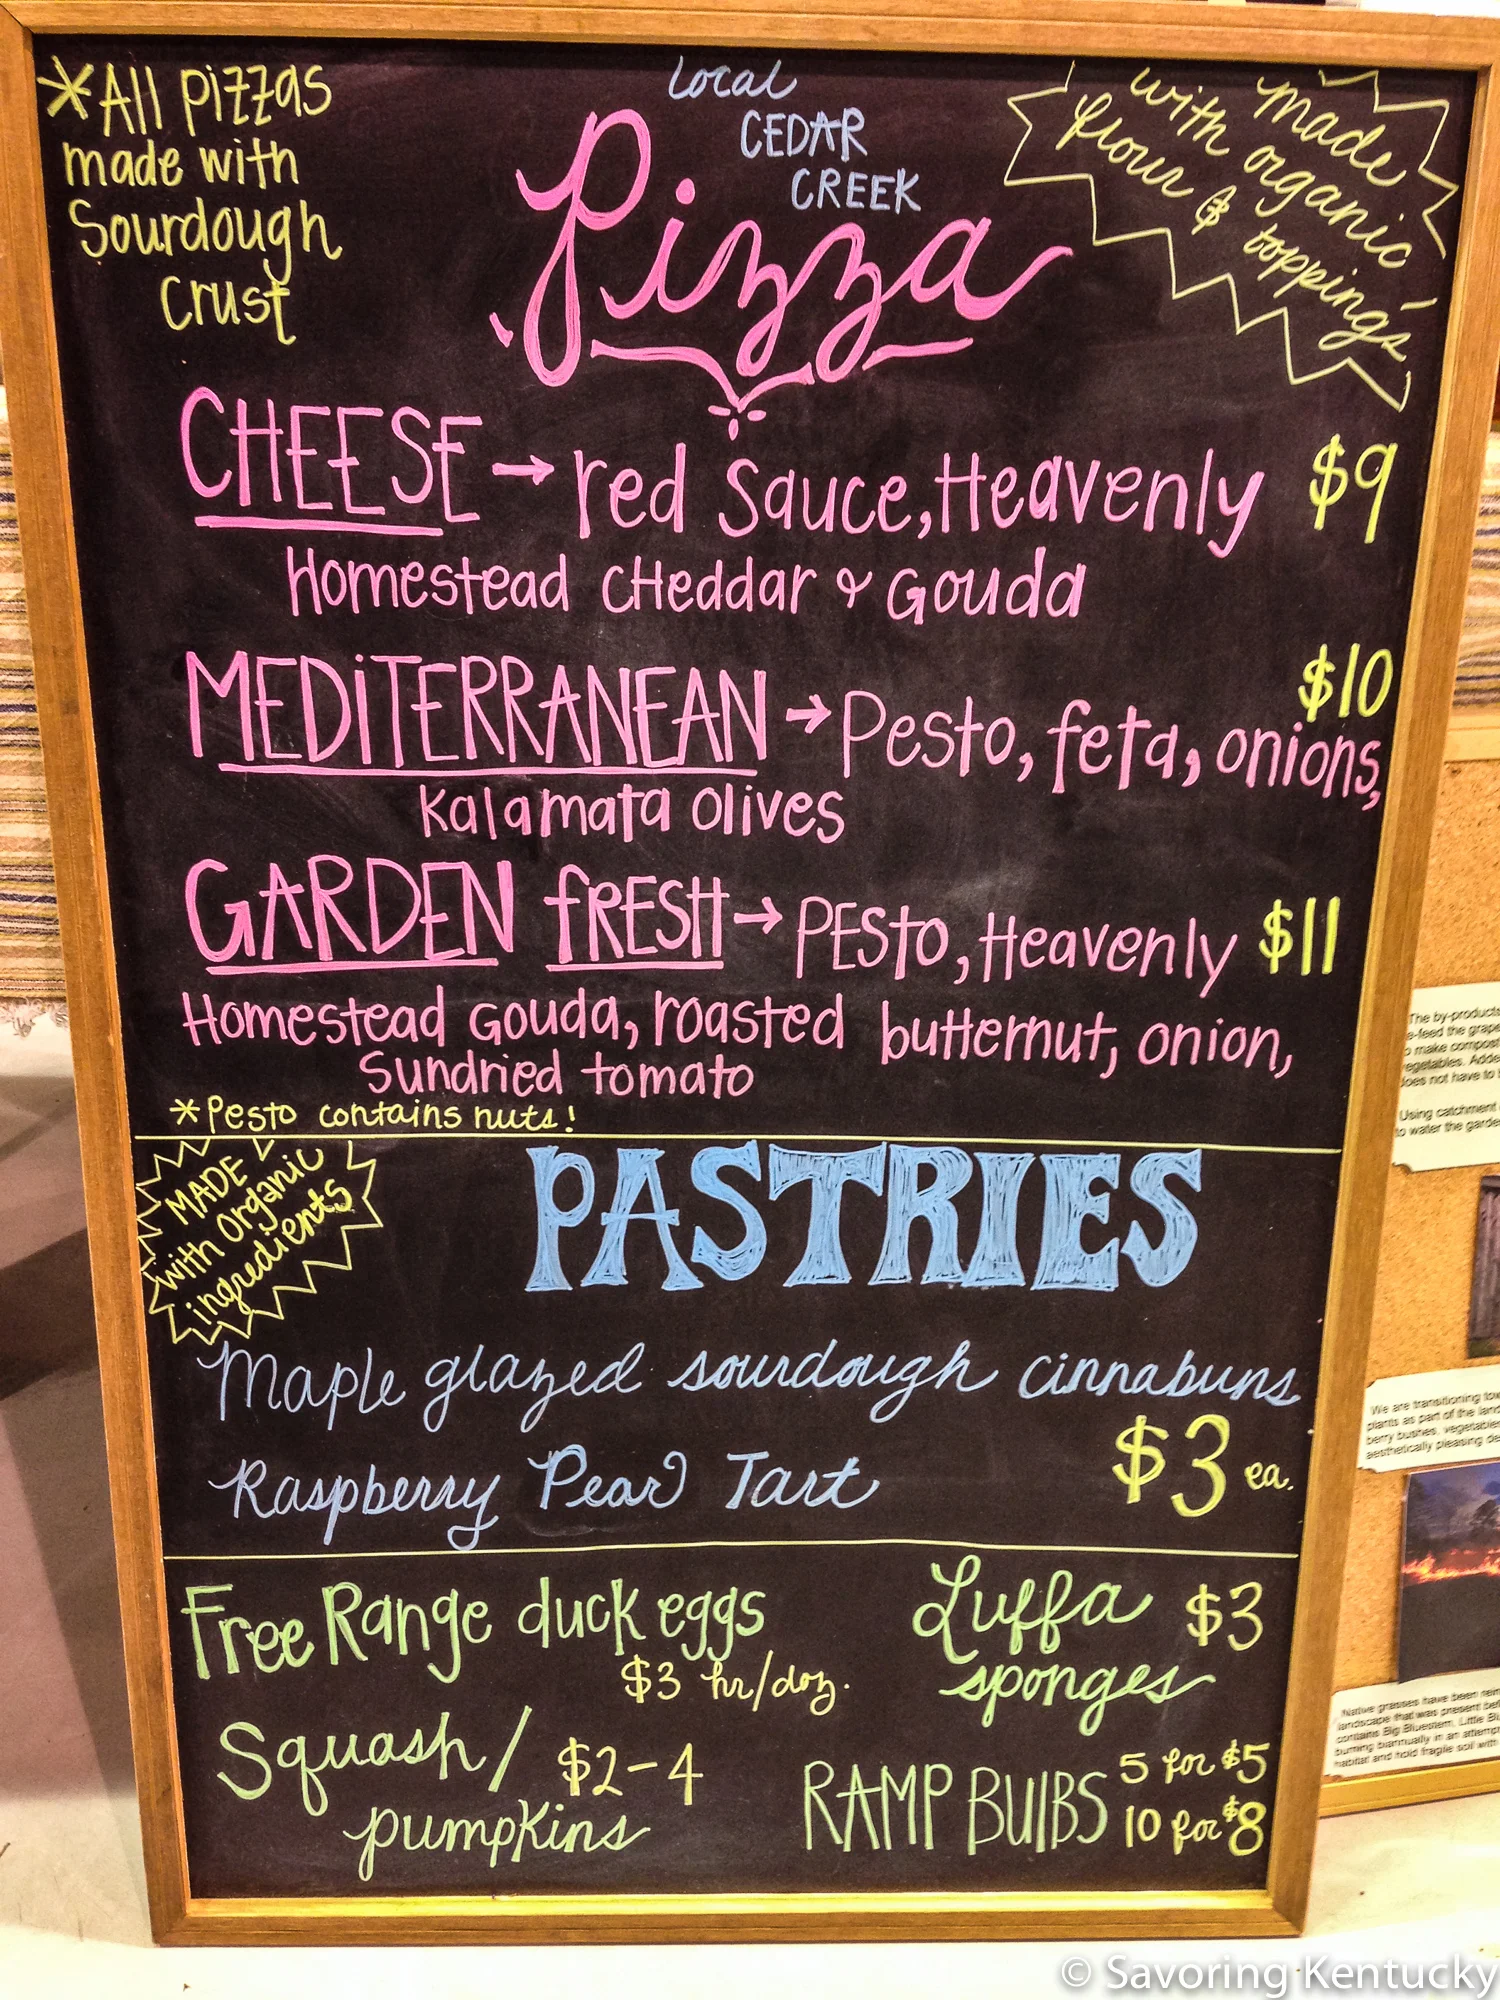 *All pizzas
made with
Sourdough
Crust
Local
CEDAR
CREEK
Pizza
Made
with organic
flour & topping's
CHEESE → red sauce, Heavenly $9
Homestead CHeddar & Gouda
MEDiTERRANEAN → Pesto, feta, onions, $10
Kalamata olives
GARDEN fRESH → PESto, Heavenly $11
Homestead Gouda, roasted butternut, onion,
Sundried tomato
*Pesto contains nuts!
MADE
with Organic
ingredients
PASTRIES
Maple glazed sourdough cinnabuns
Raspberry Pear Tart $3 ea.
Free Range duck eggs
$3 hr/doz.
Luffa $3
sponges
Squash/ $2-4
pumpkins
RAMP BUlBS 5 for $5
10 for $8
The by-products
e-feed the grape
make compost
egetables. Adde
oes not have to
Using catchment
to water the garde
We are transitioning tow
plants as part of the land
berry bushes, vegetables
aesthetically pleasing de
Native grasses have been rein
landscape that was present bef
contains Big Bluestem, Little Bl
burning biannually in an attempt
habitat and hold fragile soil with
© Savoring Kentucky